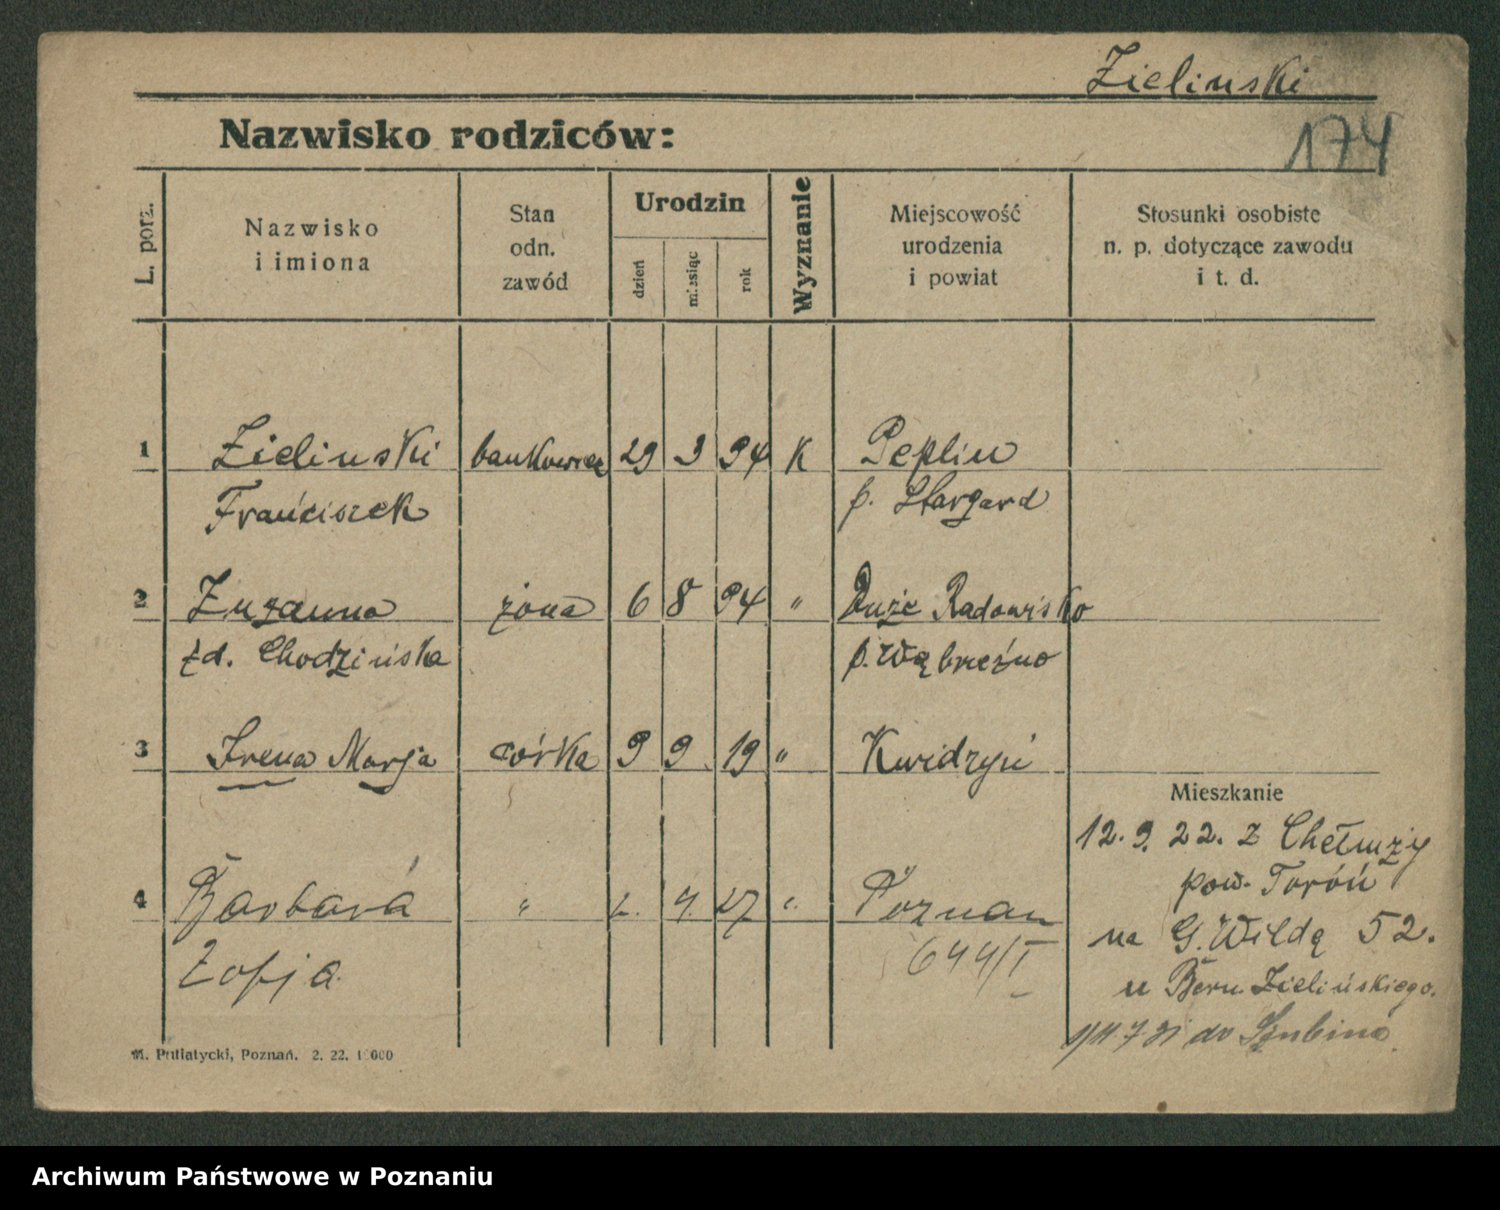 Zielinski
Nazwisko rodziców:
174
L. porz.
Nazwisko
i imiona
Stan
odn.
zawód
Urodzin
dzień
miesiąc
rok
Wyznanie
Miejscowość
urodzenia
i powiat
Stosunki osobiste
n. p. dotyczące zawodu
i t. d.
1 Zielinski bankowiec 29 3 94 K Peplin
Franciszek p. Stargard
2 Zuzanna żona 6 8 94 " Duże Radowisko
zd. Chodzińska p. Wąbrzeźno
3 Irena Marja córka 9 9 19 " Kwidzyń
Mieszkanie
12. 9. 22. z Chełmży
pow. Toróń
4 Barbara " 2. 4. 27 " Poznan
na G. Wildą 52.
Zofja 644/I
u Bern. Zielińskiego.
do Szubina
M. Putiatycki, Poznań. 2. 22. 10000
Archiwum Państwowe w Poznaniu